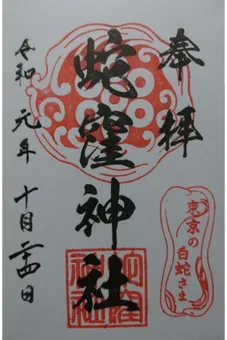 奉拝
蛇窪神社
令和元年十月二十四日
東京の
白蛇さま
蛇窪
神社